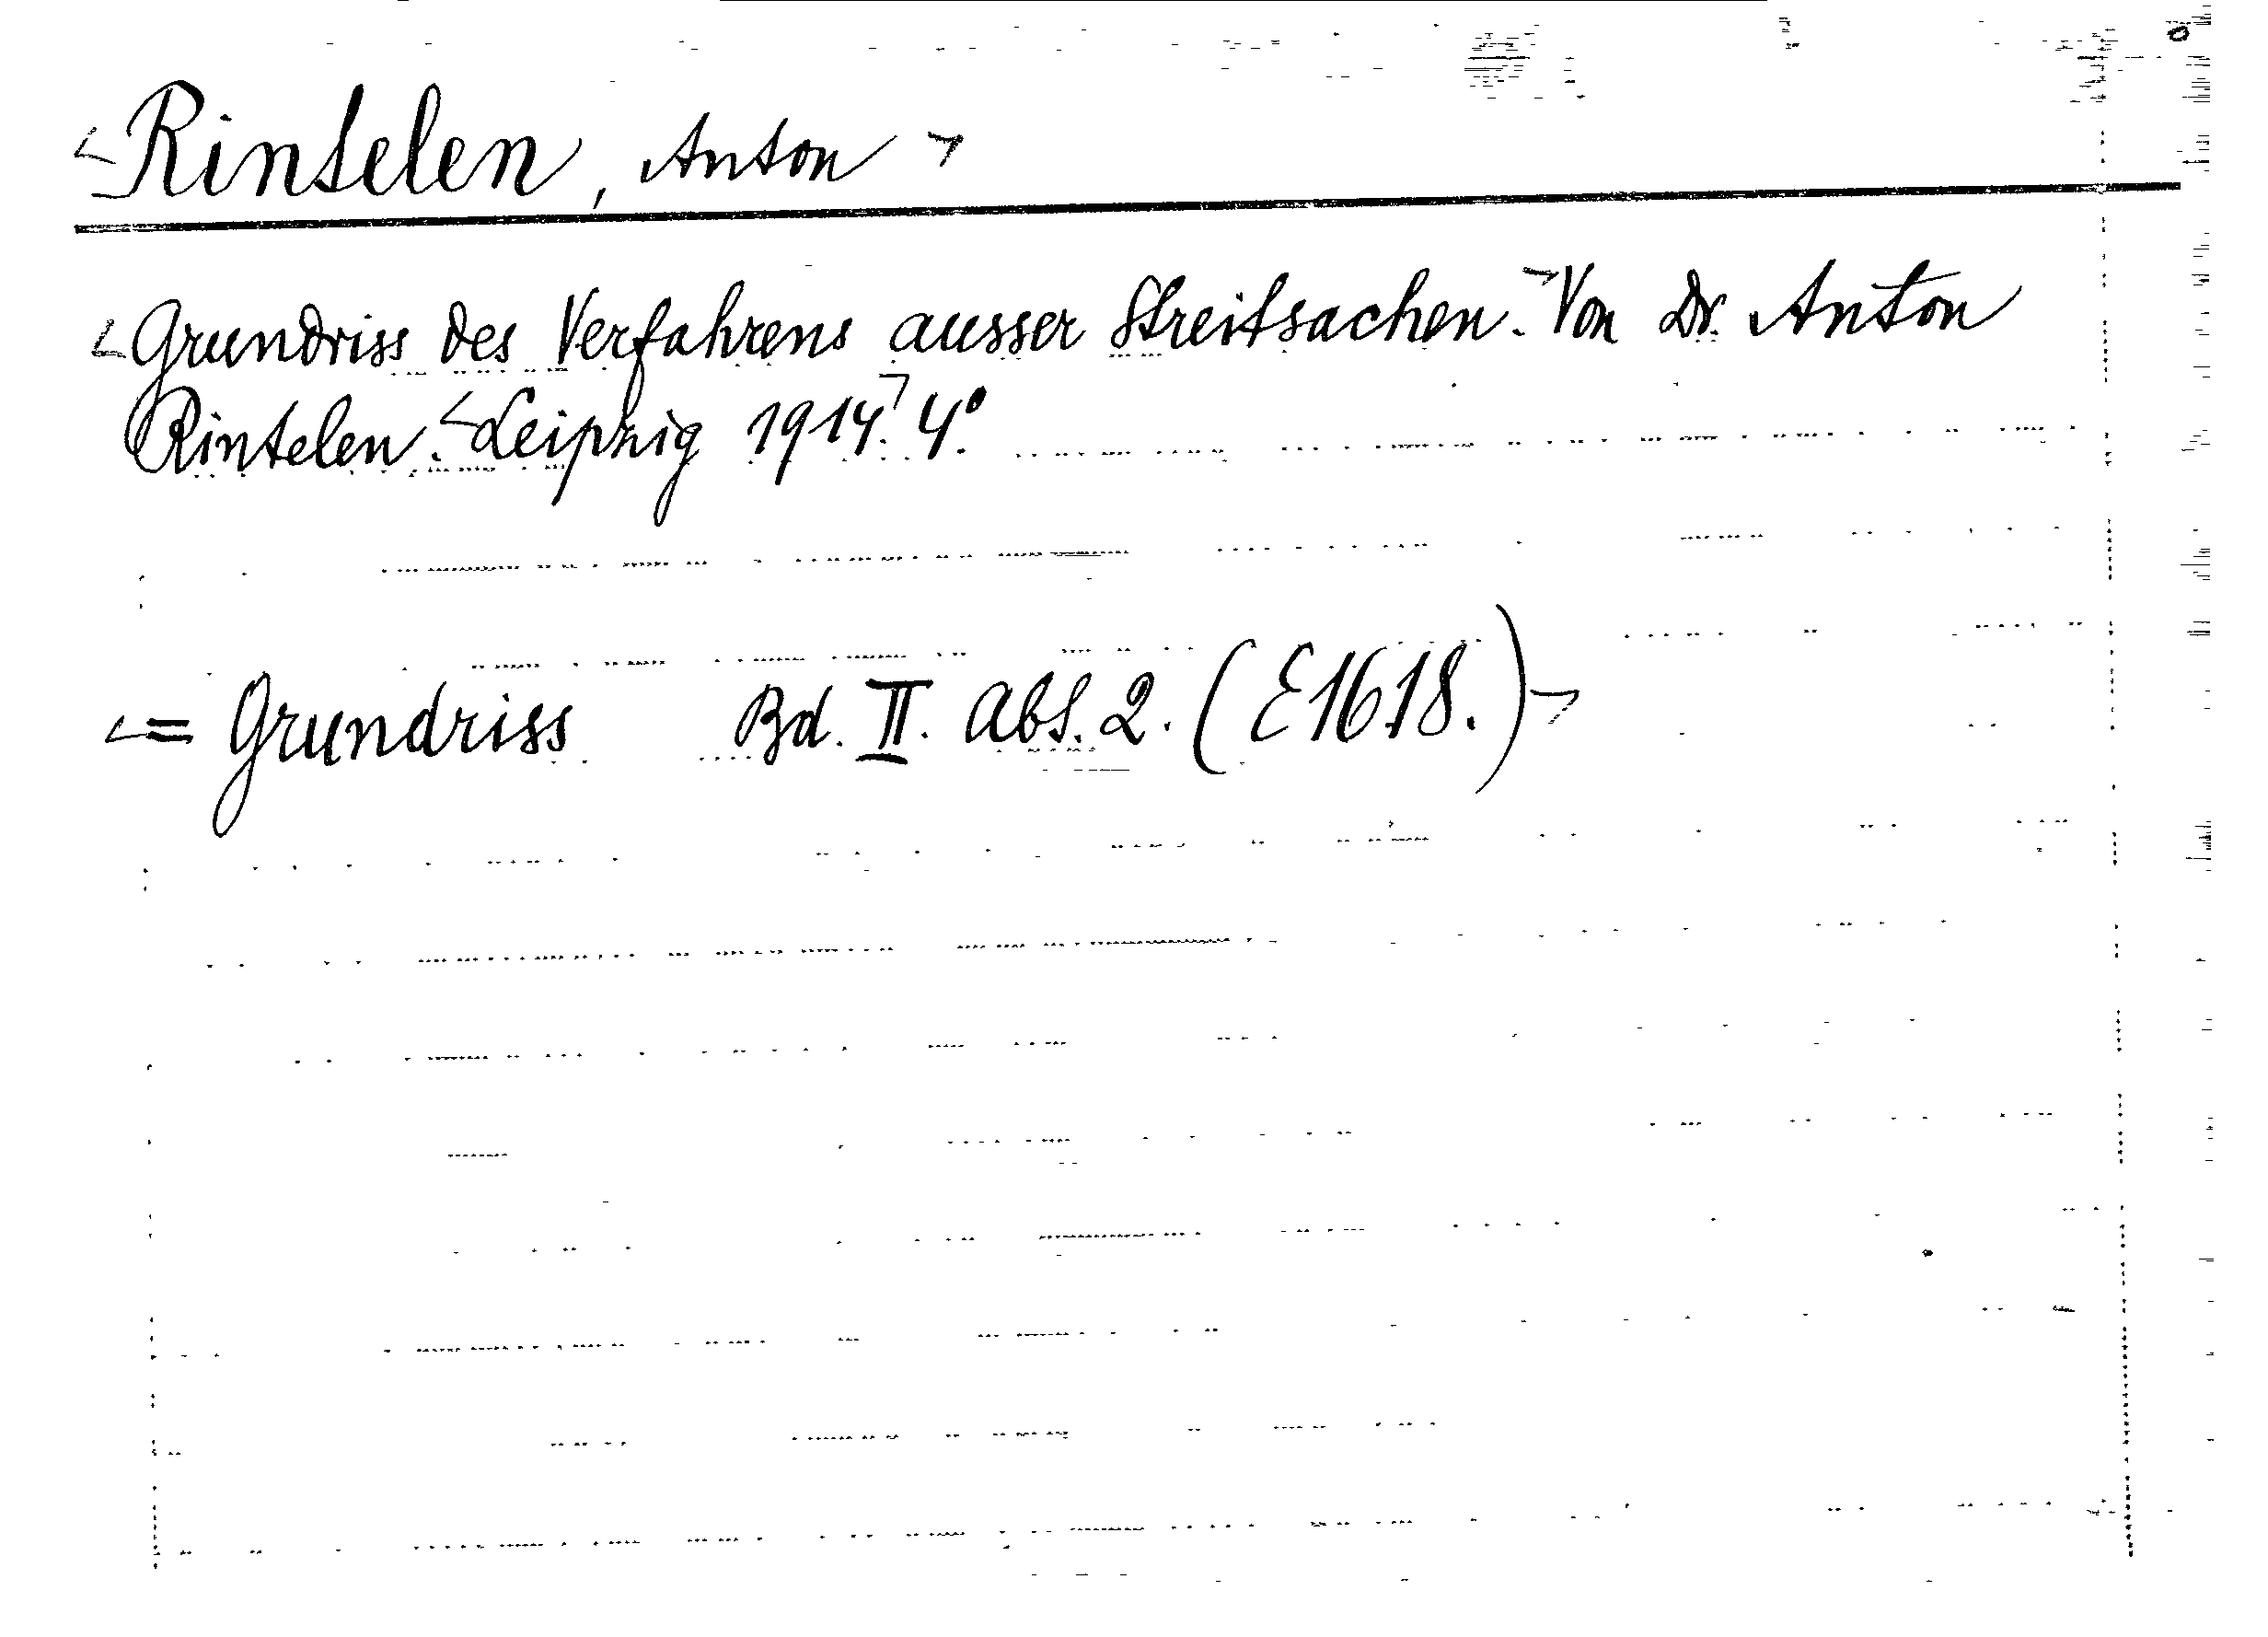 <Rintelen, Anton>
<Grundriss des Verfahrens ausser Streitsachen.> Von Dr. Anton
Rintelen. <Leipzig 1914.> 4°.
<= Grundriss Bd. II. Abt. 2. (E1618.)>